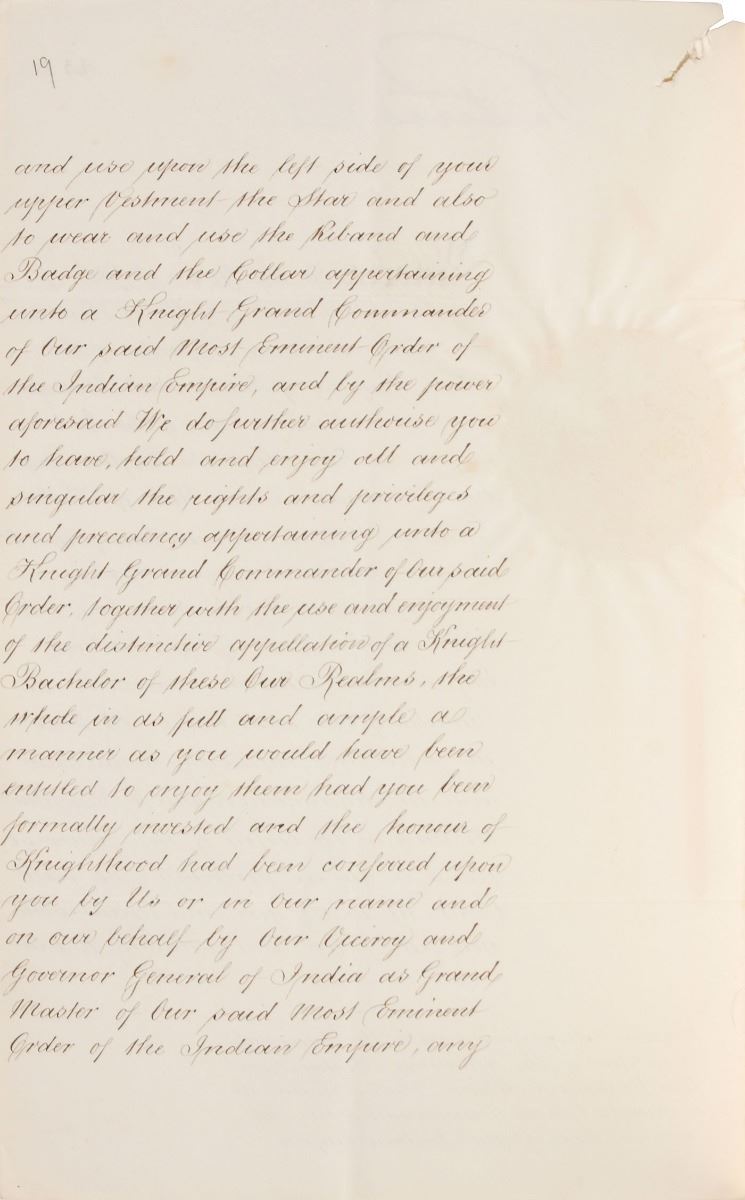 19
and use upon the left side of your
upper Vestment the Star and also
to wear and use the Riband and
Badge and the Collar appertaining
unto a Knight Grand Commander
of Our said Most Eminent Order of
the Indian Empire, and by the power
aforesaid We do further authorise you
to have, hold and enjoy all and
singular the rights and privileges
and precedency appertaining unto a
Knight Grand Commander of Our said
Order, together with the use and enjoyment
of the distinctive appellation of a Knight
Bachelor of these Our Realms, the
whole in as full and ample a
manner as you would have been
entitled to enjoy them had you been
formally invested and the honour of
Knighthood had been conferred upon
you by Us or in Our name and
on our behalf by Our Viceroy and
Governor General of India as Grand
Master of Our said Most Eminent
Order of the Indian Empire, any